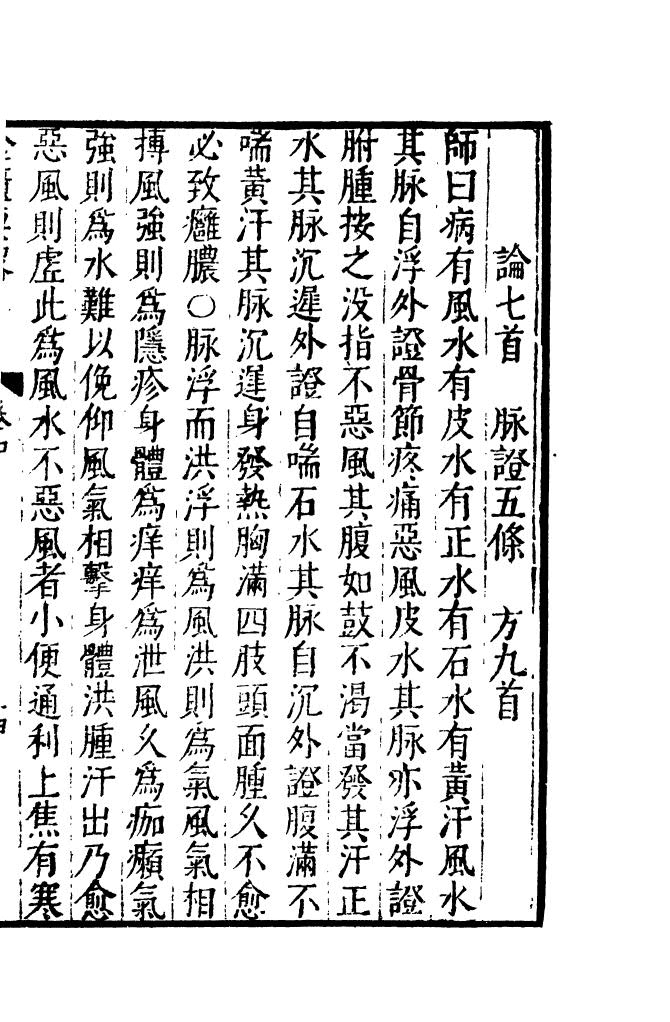 論七首　脉證五條　方九首
師曰病有風水有皮水有正水有石水有黃汗風水
其脉自浮外證骨節疼痛惡風皮水其脉亦浮外證
胕腫按之没指不惡風其腹如鼓不渴當發其汗正
水其脉沉遲外證自喘石水其脉自沉外證腹滿不
喘黃汗其脉沉遲身發熱胸滿四肢頭面腫久不愈
必致癰膿○脉浮而洪浮則爲風洪則爲氣風氣相
搏風強則爲隱疹身體爲痒痒爲泄風久爲痂癩氣
強則爲水難以俛仰風氣相擊身體洪腫汗出乃愈
惡風則虛此爲風水不惡風者小便通利上焦有寒